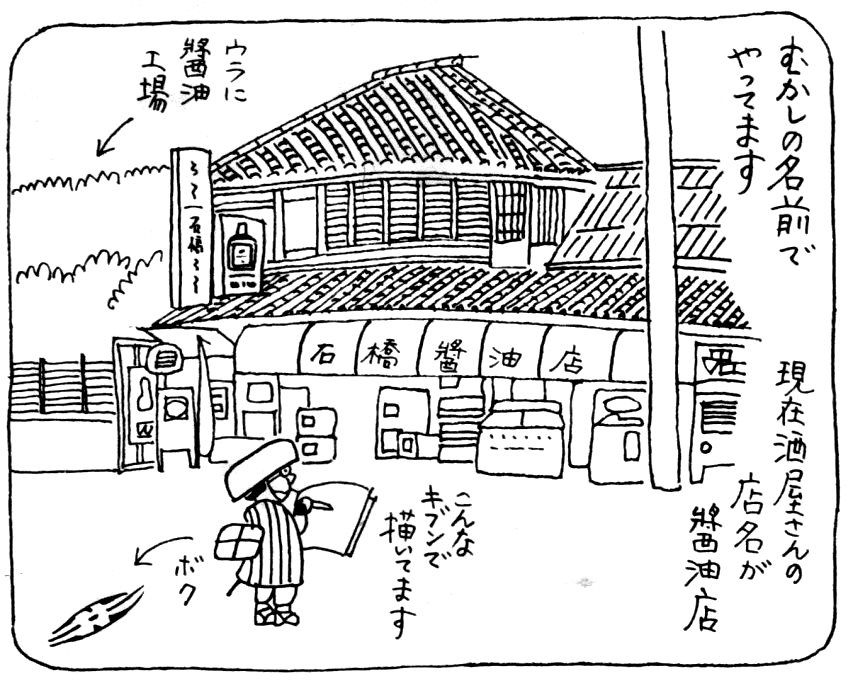 むかしの名前で
やってます
現在酒屋さんの
店名が
醬油店
ウラに
醬油
工場
石橋
石橋醬油店
こんな
キブンで
描いてます
ボク